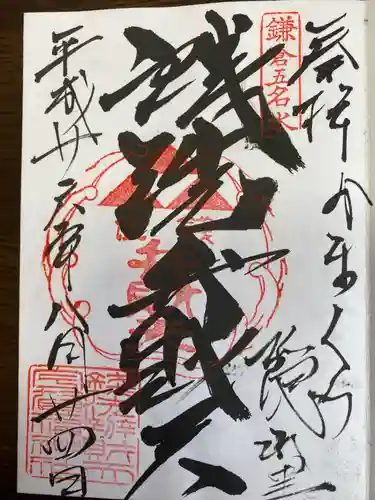 奉拝 かまくら 隠里
鎌倉五名水
錢洗弁財天
平成廿六年八月廿四日